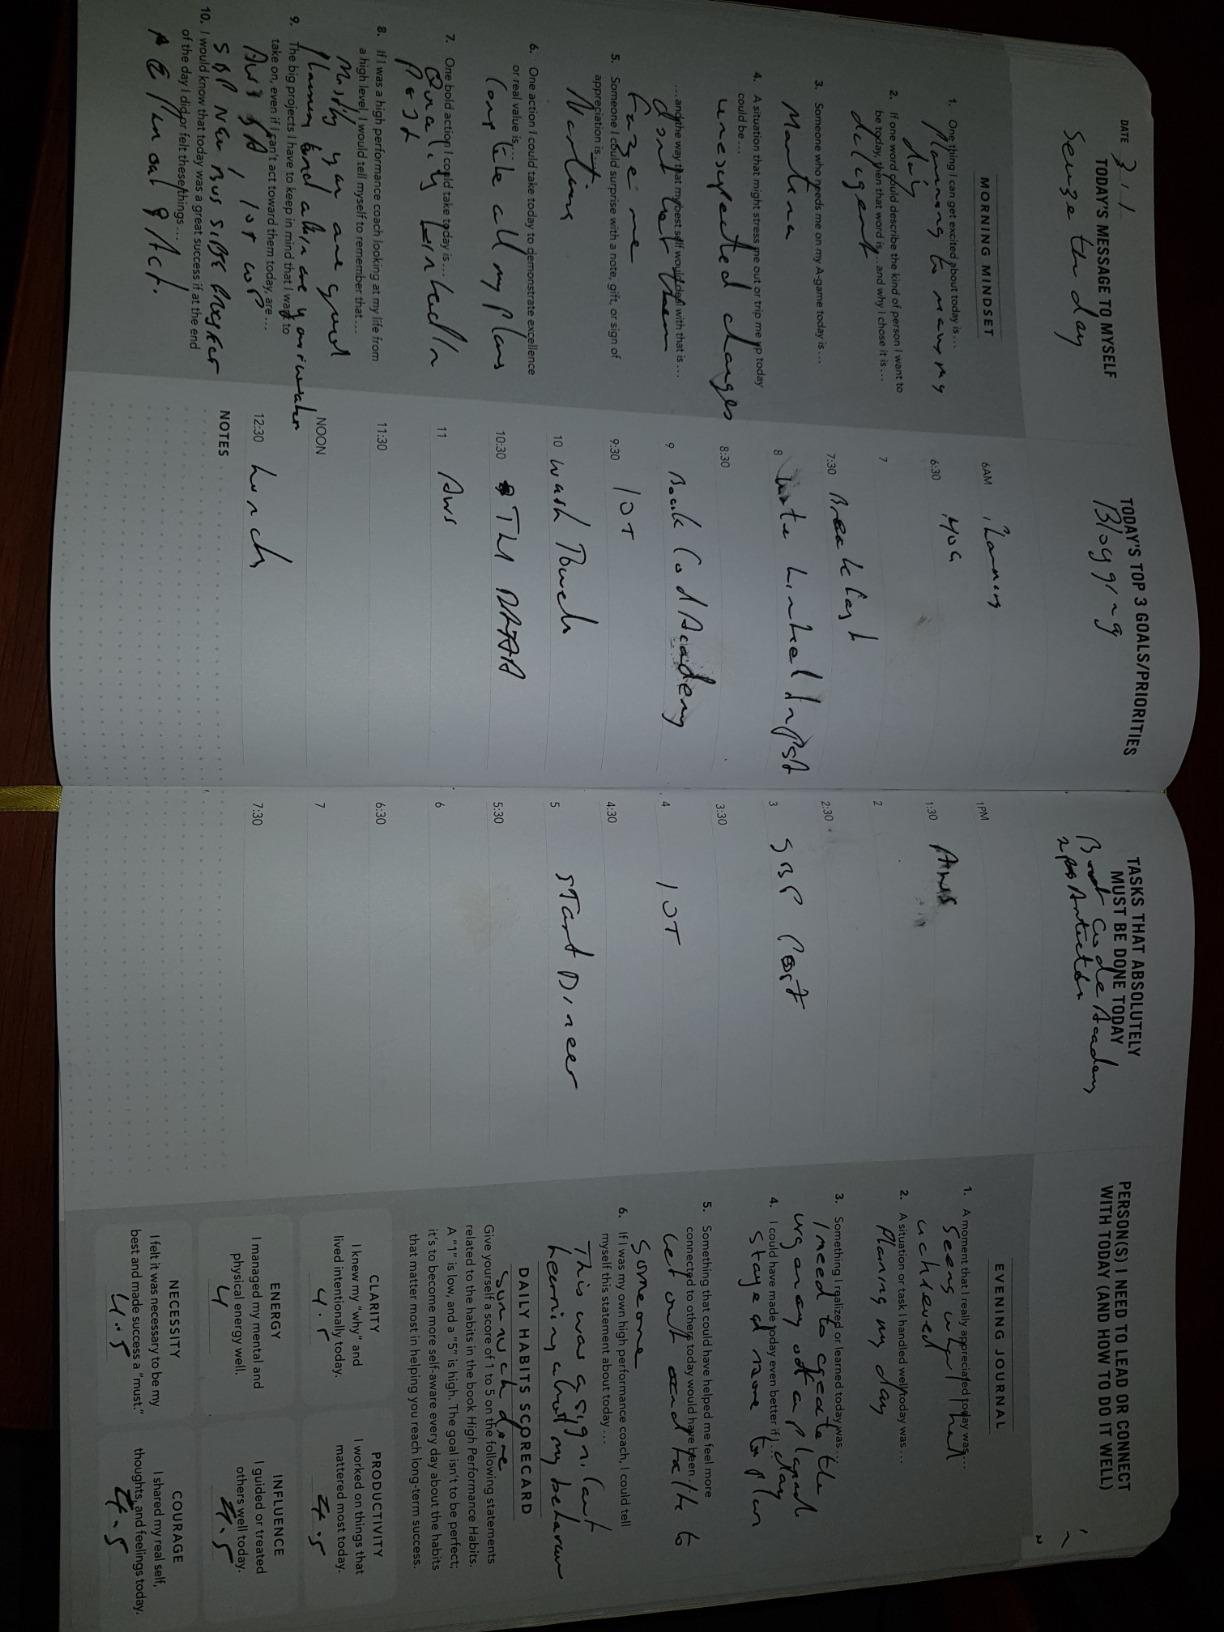 DATE
TODAY'S MESSAGE TO MYSELF
Seuze the day
MORNING MINDSET
1. One thing I can get excited about today is...
Planning to
day
2. If one word could describe the kind of person I want to
be today, then that word is... and why I chose it is...
deligent
3. Someone who needs me on my A-game today is...
Martina
4. A situation that might stress me out or trip me up today
could be...
unexspected changes
...and the way that my best self would deal with that is...
don't let them
faze me
5. Someone I could surprise with a note, gift, or sign of
appreciation is...
Martina
6. One action I could take today to demonstrate excellence
or real value is...
complete all my plans
7. One bold action I could take today is...
Quality LinkedIn
Post
8. If I was a high performance coach looking at my life from
a high level, I would tell myself to remember that...
you are good
9. The big projects I have to keep in mind that I want to
take on, even if I can't act toward them today, are...
AWS SA, IOT
10. I would know that today was a great success if at the end
of the day I did or felt these things...
TODAY'S TOP 3 GOALS/PRIORITIES
Blogging
6AM Planning
6:30 Yoga
7
7:30 Breakfast
8 Write
8:30
9 Book Cod Academy
9:30 IOT
10 Wash
10:30 TM DATA
11 AWS
11:30
NOON
12:30 Lunch
NOTES
TASKS THAT ABSOLUTELY
MUST BE DONE TODAY
Book Code Academy
1PM
1:30 AWS
2
2:30
3 SBP Post
3:30
4 IOT
4:30
5 START Dineer
5:30
6
6:30
7
7:30
PERSON(S) I NEED TO LEAD OR CONNECT
WITH TODAY (AND HOW TO DO IT WELL)
EVENING JOURNAL
1. A moment that I really appreciated today was...
Seeing what I had
achieved
2. A situation or task I handled well today was...
Planing my day
3. Something I realized or learned today was...
I need to create the
urgency of a plan
4. I could have made today even better if I...
stayed more to plan
5. Something that could have helped me feel more
connected to others today would have been...
Get out and talk to
someone
6. If I was my own high performance coach, I could tell
myself this statement about today...
This was a significant
DAILY HABITS SCORECARD
Give yourself a score of 1 to 5 on the following statements
related to the habits in the book High Performance Habits.
A "1" is low, and a "5" is high. The goal isn't to be perfect;
it's to become more self-aware every day about the habits
that matter most in helping you reach long-term success.
CLARITY
I knew my "why" and
lived intentionally today.
4.5
PRODUCTIVITY
I worked on things that
mattered most today.
4.5
ENERGY
I managed my mental and
physical energy well.
4
INFLUENCE
I guided or treated
others well today.
4.5
NECESSITY
I felt it was necessary to be my
best and made success a "must."
4.5
COURAGE
I shared my real self,
thoughts, and feelings today.
4.5